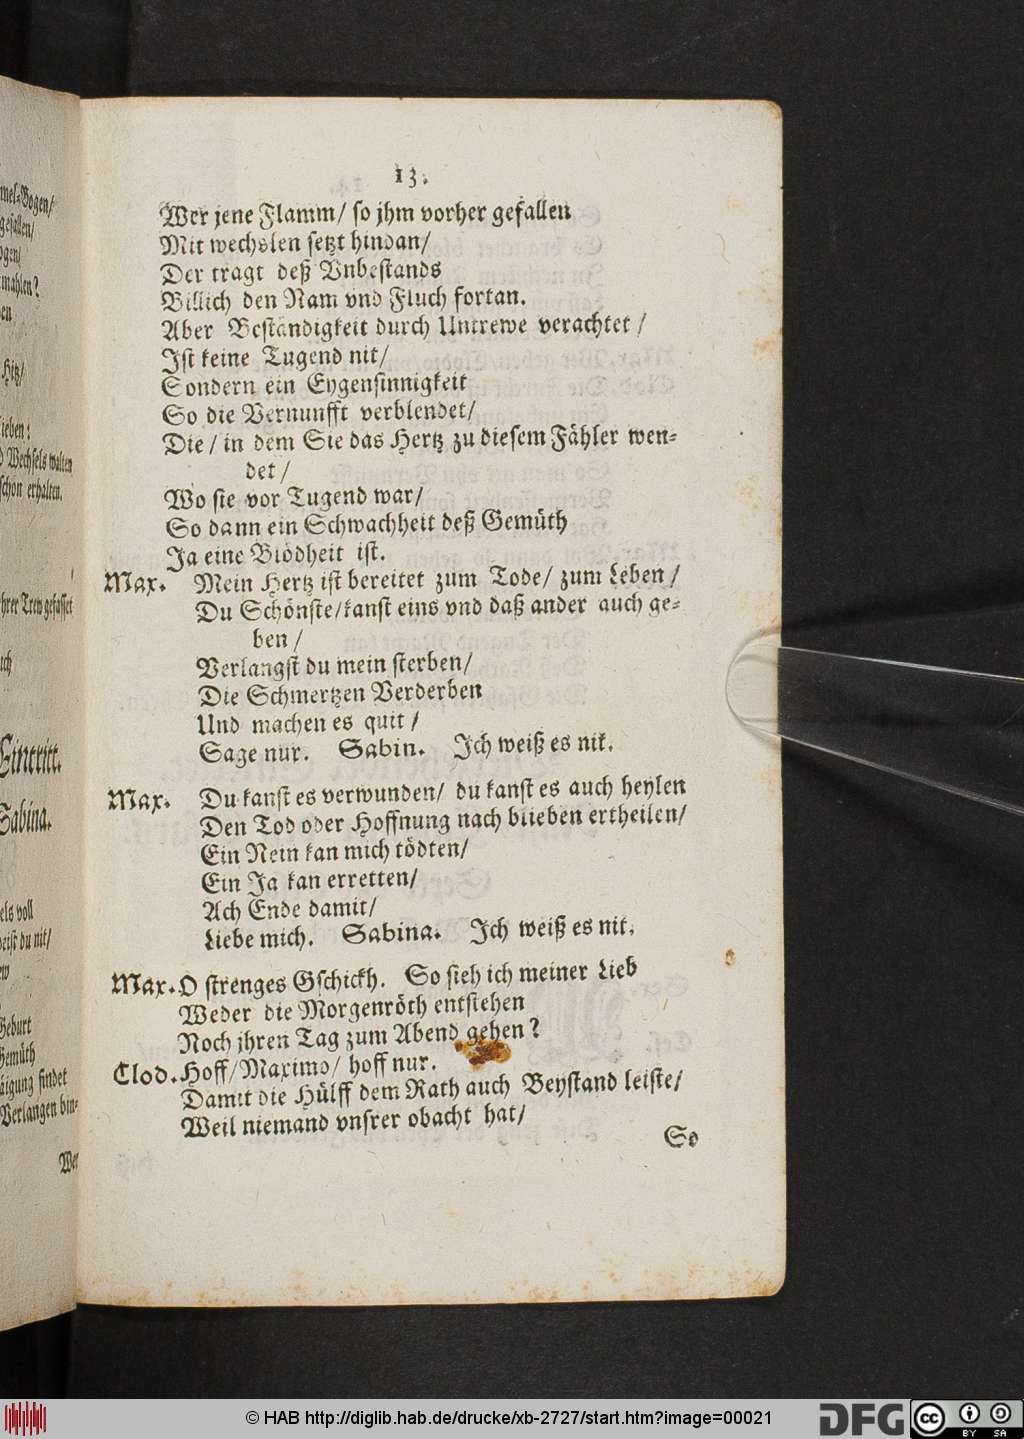 13.
Wer jene Flamm/ so jhm vorher gefallen
Mit wechslen setzt hindan/
Der tragt deß Vnbestands
Billich den Nam vnd Fluch fortan.
Aber Beständigkeit durch Untrewe verachtet /
Ist keine Tugend nit/
Sondern ein Eygensinnigkeit
So die Vernunfft verblendet/
Die / in dem Sie das Hertz zu diesem Fähler wen-
det /
Wo sie vor Tugend war/
So dann ein Schwachheit deß Gemüth
Ja eine Blödheit ist.
Max. Mein Hertz ist bereitet zum Tode/ zum Leben /
Du Schönste/kanst eins vnd daß ander auch ge-
ben /
Verlangst du mein sterben/
Die Schmertzen Verderben
Und machen es quit /
Sage nur. Sabin. Ich weiß es nit.
Max. Du kanst es verwunden/ du kanst es auch heylen
Den Tod oder Hoffnung nach blieben ertheilen/
Ein Nein kan mich tödten/
Ein Ja kan erretten/
Ach Ende damit/
Liebe mich. Sabina. Ich weiß es nit.
Max. O strenges Gschickh. So sieh ich meiner Lieb
Weder die Morgenröth entstehen
Noch jhren Tag zum Abend gehen?
Clod. Hoff/Maximo/ hoff nur.
Damit die Hülff dem Rath auch Beystand leiste/
Weil niemand vnsrer obacht hat/
So
mel-Bogen/
gefallen/
mahlen?
Hitz/
lieben:
Wechsels walten
schon erhalten.
hrer Trew gefasset
Eintritt.
Sabina.
els voll
du nit/
Geburt
Gemüth
findet
Verlangen bin-
Wer
© HAB http://diglib.hab.de/drucke/xb-2727/start.htm?image=00021
DFG
cc BY SA